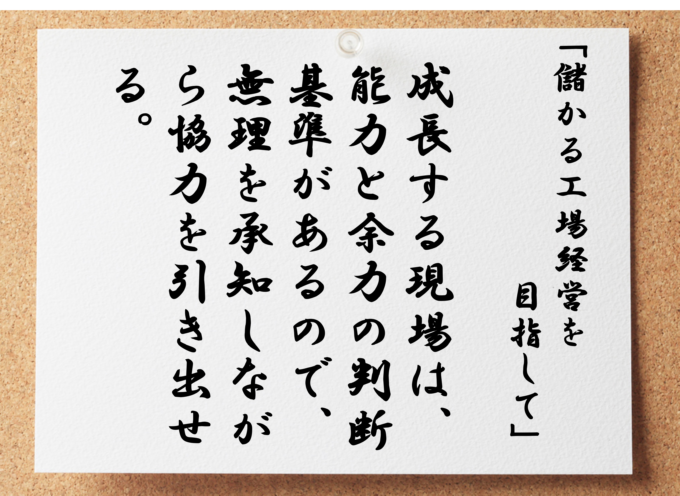 「儲かる工場経営を
目指して」
成長する現場は、
能力と余力の判断
基準があるので、
無理を承知しなが
ら協力を引き出せ
る。